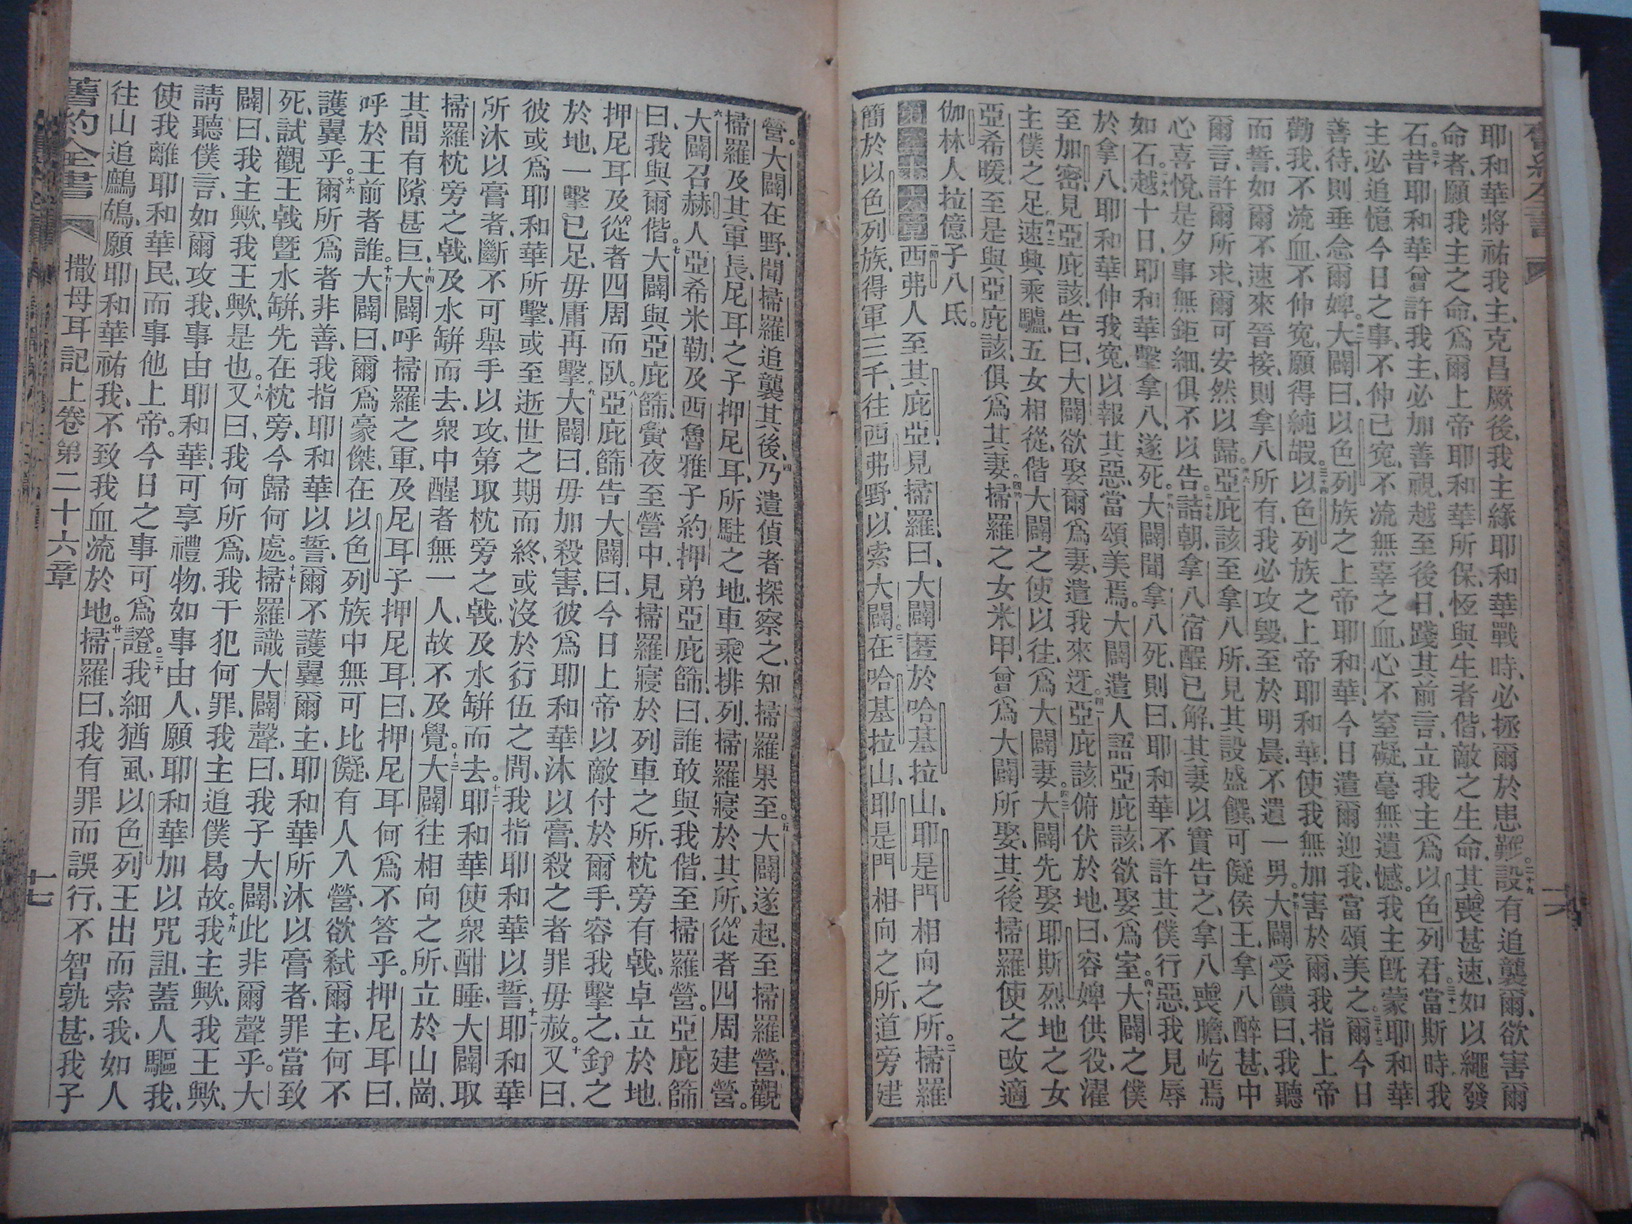 耶和華將祐我主、克昌厥後、我主緣耶和華戰時、必拯爾於患難。二十九設有追襲爾、欲害爾
命者、願我主之命、爲爾上帝耶和華所保、恆與生者偕、敵之生命、其喪甚速、如以繩發
石。三十昔耶和華曾許我主、必加善視、越至後日、踐其前言、立我主爲以色列君。三十一當斯時、我
主必追憶今日之事、不伸已冤、不流無辜之血、心不窒礙、毫無遺憾。我主旣蒙耶和華
善待、則垂念爾婢。三十二大闢曰、以色列族之上帝耶和華、今日遣爾迎我、當頌美之。三十三爾今日
勸我不流血、不伸寃、願得純嘏。三十四以色列族之上帝耶和華、使我無加害於爾、我指上帝
而誓、如爾不速來晉接、則拿八所有、我必攻毀、至於明晨、不遺一男。三十五大闢受饋曰、我聽
爾言、許爾所求、爾可安然以歸。三十六亞庇該至拿八所、見其設盛饌、可儗侯王、拿八醉甚、中
心喜悅、是夕事無鉅細、俱不以告。三十七詰朝拿八宿酲已解、其妻以實告之、拿八喪膽、屹焉
如石。三十八越十日、耶和華擊拿八遂死。三十九大闢聞拿八死、則曰、耶和華不許其僕行惡、我見辱
於拿八、耶和華伸我寃、以報其惡、當頌美焉。大闢遣人語亞庇該、欲娶爲室。四十大闢之僕
至加密、見亞庇該告曰、大闢欲娶爾爲妻、遣我來迓。四一亞庇該俯伏於地、曰、容婢供役、濯
主僕之足。四十二速興乘驢、五女相從、偕大闢之使以往、爲大闢妻。四三大闢先娶耶斯烈地之女
亞希暖、至是與亞庇該、俱爲其妻。四四掃羅之女米甲、曾爲大闢所娶、其後掃羅使之改適
伽林人拉億子八氐。
西弗人至其庇亞、見掃羅曰、大闢匿於哈基拉山、耶是門相向之所。二掃羅
簡於以色列族、得軍三千、往西弗野、以索大闢。三在哈基拉山、耶是門相向之所、道旁建
營。大闢在野、聞掃羅追襲其後、四乃遣偵者探察之、知掃羅果至。五大闢遂起、至掃羅營、觀
掃羅及其軍長、尼耳之子押尼耳、所駐之地、車乘排列、掃羅寢於其所、從者四周建營。
六大闢召赫人亞希米勒、及西魯雅子約押弟亞庇篩曰、誰敢與我偕至掃羅營。亞庇篩
曰、我與爾偕。七大闢與亞庇篩、夤夜至營中、見掃羅寢於列車之所、枕旁有戟、卓立於地、
押尼耳及從者四周而臥。八亞庇篩告大闢曰、今日上帝以敵付於爾手、容我擊之、釘之
於地、一擊已足、毋庸再擊。九大闢曰、毋加殺害、彼爲耶和華沐以膏、殺之者罪毋赦。十又曰、
彼或爲耶和華所擊、或至逝世之期而終、或沒於行伍之間、我指耶和華以誓、十一耶和華
所沐以膏者、斷不可舉手以攻、第取枕旁之戟、及水缾而去。十二耶和華使衆酣睡、大闢取
掃羅枕旁之戟、及水缾而去、衆中醒者無一人、故不及覺。十三大闢往相向之所、立於山崗、
其間有隙甚巨。十四大闢呼掃羅之軍、及尼耳子押尼耳曰、押尼耳何爲不答乎。押尼耳曰、
呼於王前者誰。十五大闢曰、爾爲豪傑、在以色列族中無可比儗、有人入營、欲弒爾主、何不
護翼乎。十六爾所爲者非善、我指耶和華以誓、爾不護翼爾主、耶和華所沐以膏者、罪當致
死、試觀王戟曁水缾、先在枕旁、今歸何處。十七掃羅識大闢聲、曰、我子大闢、此非爾聲乎。大
闢曰、我主歟、我王歟、是也。十八又曰、我何所爲、我干犯何罪、我主追僕曷故。十九我主歟、我王歟、
請聽僕言、如爾攻我、事由耶和華、可享禮物、如事由人、願耶和華加以咒詛、蓋人驅我、
使我離耶和華民、而事他上帝。今日之事可爲證。二十我細猶虱、以色列王出而索我、如人
往山追鷓鴣、願耶和華祐我、不致我血流於地。廿一掃羅曰、我有罪而誤行、不智孰甚、我子
舊約全書 撒母耳記上卷 第二十六章 十七